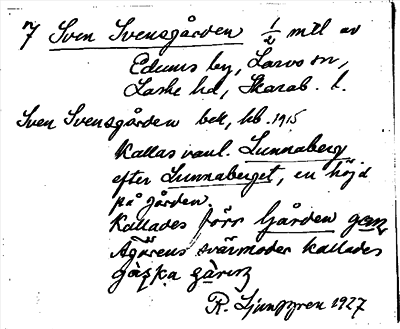 Sven Svensgården 1/2 mtl av
Edums by, Larvs sn,
Laske hd, Skarab. l.
Sven Svensgården bek, kb. 1915
Kallas vanl. Lunnaberg
efter Lunnaberget, en höjd
på gården.
Kallades förr Gården
Ägarens svärmoder kallades
R. Ljunggren 1927